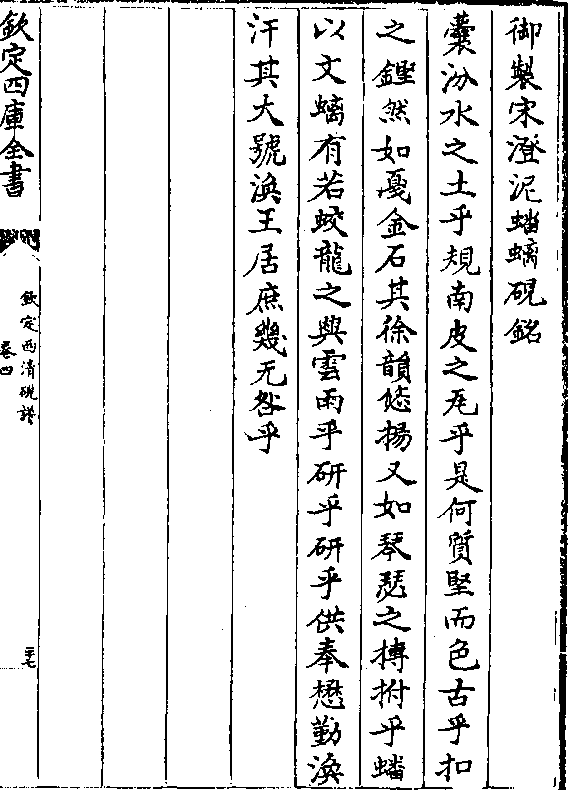 御製宋澄泥蟠螭硯銘
囊汾水之土乎規南皮之瓦乎是何質堅而色古乎扣
之鏗然如戛金石其徐韻悠揚又如琴瑟之搏拊乎蟠
以文螭有若蛟龍之興雲雨乎研乎研乎供奉懋勤渙
汗其大號渙王居庶幾无咎乎
欽定四庫全書
欽定西清硯譜
卷四
三七